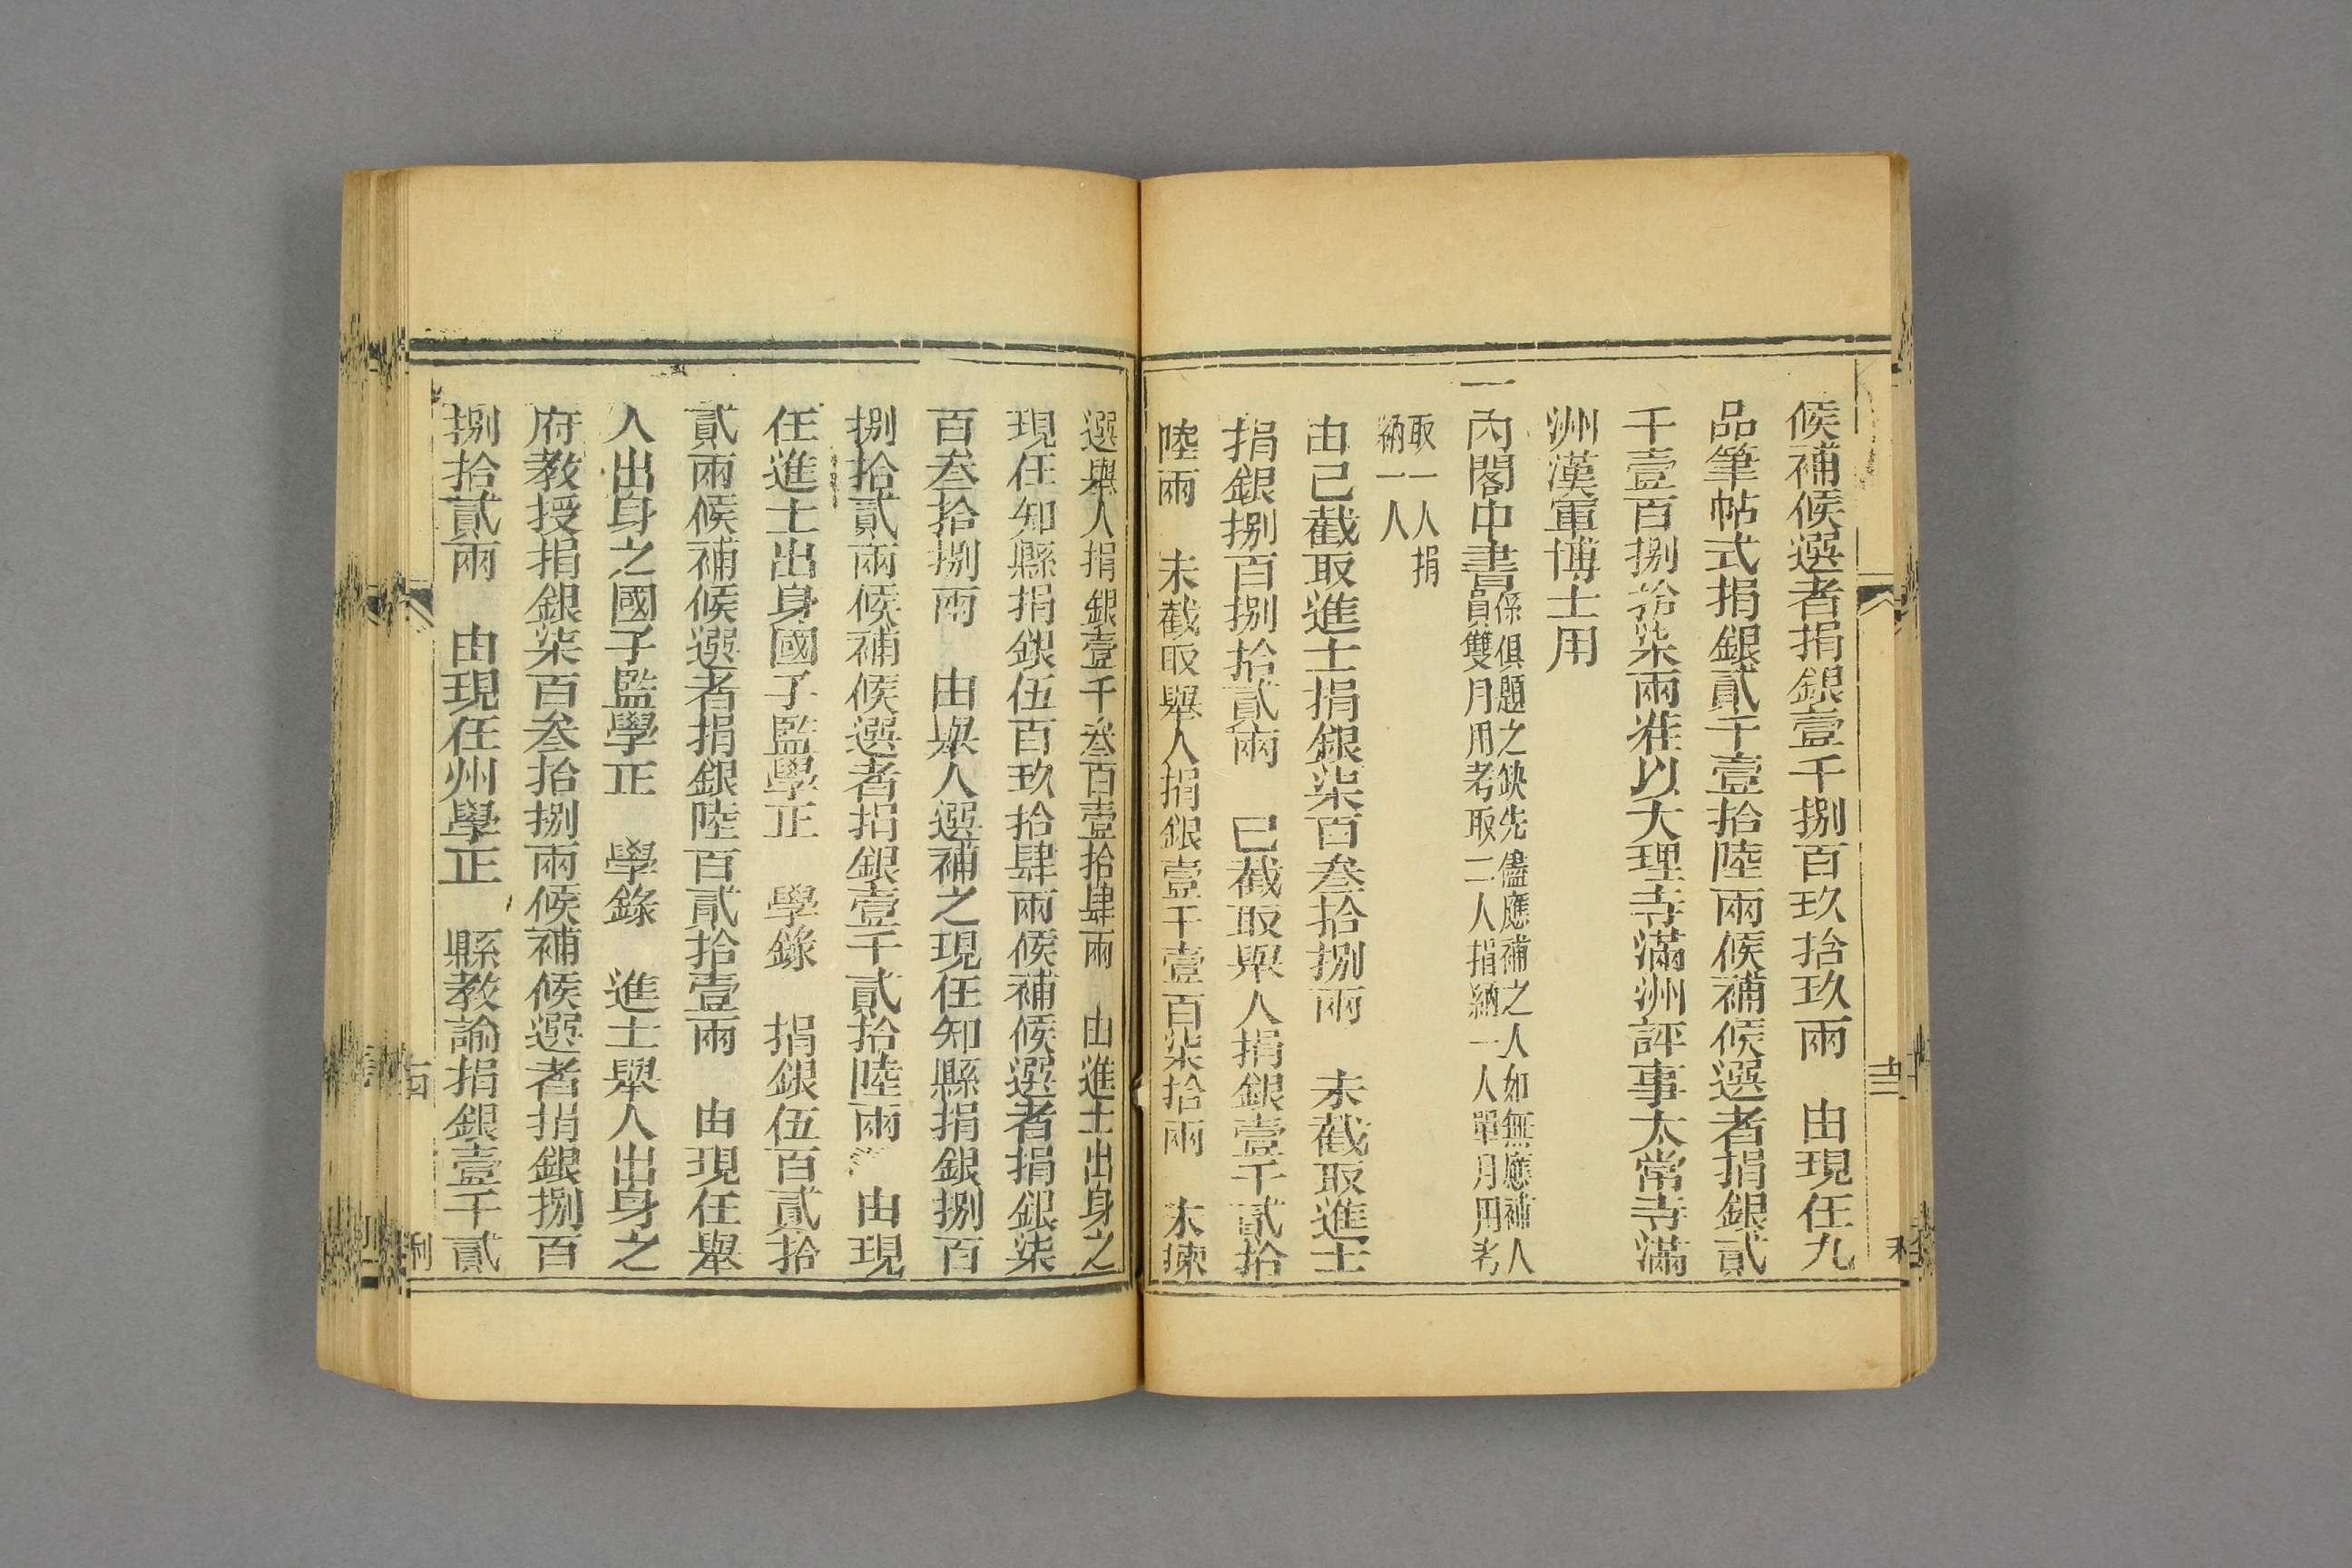 候補候選者捐銀壹千捌百玖拾玖兩　由現任九
品筆帖式捐銀貳千壹拾陸兩候補候選者捐銀貳
千壹百捌拾柒兩准以大理寺滿洲評事太常寺滿
洲漢軍博士用
一內閣中書係俱題之缺先儘應補之人如無應補人
員雙月用考取二人捐納一人單月用考
取一人捐
納一人
由已截取進士捐銀柒百叁拾捌兩　未截取進士
捐銀捌百捌拾貳兩　已截取舉人捐銀壹千貳拾
陸兩　未截取舉人捐銀壹千壹百柒拾兩　未揀
選舉人捐銀壹千叁百壹拾肆兩　由進士出身之
現任知縣捐銀伍百玖拾肆兩候補候選者捐銀柒
百叁拾捌兩　由舉人選補之現任知縣捐銀捌百
捌拾貳兩候補候選者捐銀壹千貳拾陸兩　由現
任進士出身國子監學正　學錄　捐銀伍百貳拾
貳兩候補候選者捐銀陸百貳拾壹兩　由現任舉
人出身之國子監學正　學錄　進士舉人出身之
府教授捐銀柒百叁拾捌兩候補候選者捐銀捌百
捌拾貳兩　由現任州學正　縣教諭捐銀壹千貳